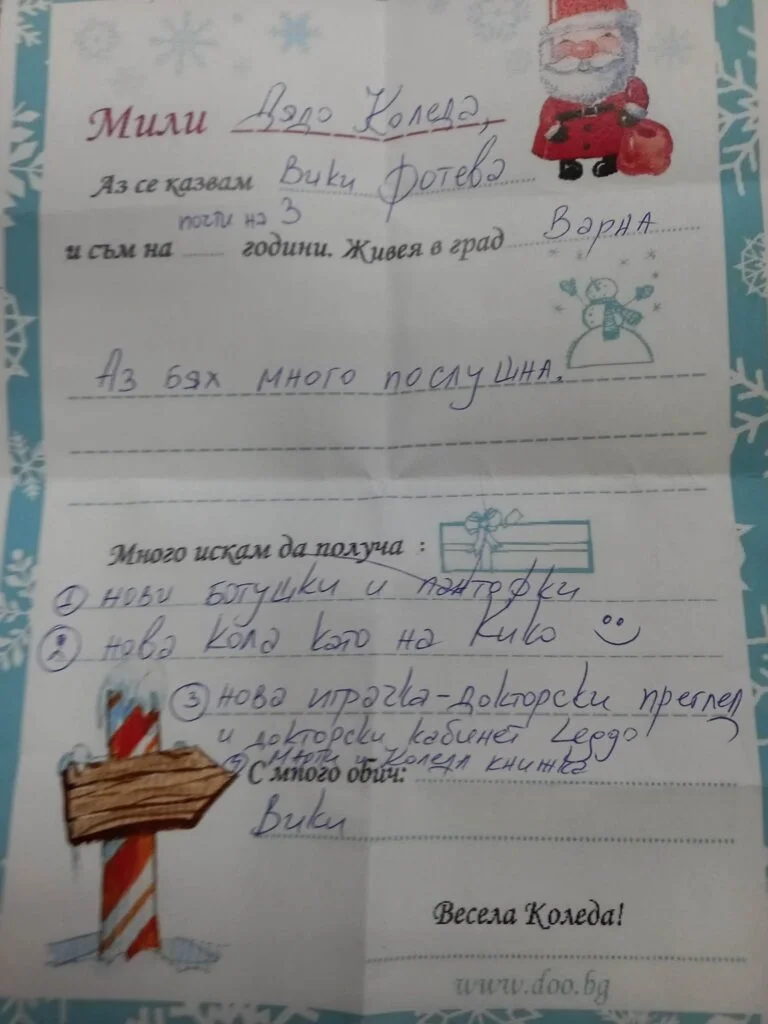 Мили Дядо Коледа,
Аз се казвам Вики Фотева
почти на 3
и съм на ...... години. Живея в град Варна
Аз бях много послушна.
Много искам да получа :
1 нови ботушки и пантофки
2 нова кола като на Кико
3 нова играчка-докторски преглед
и докторски кабинет Leggo
и Коледа книжка
С много обич:
Вики
Весела Коледа!
www.doo.bg